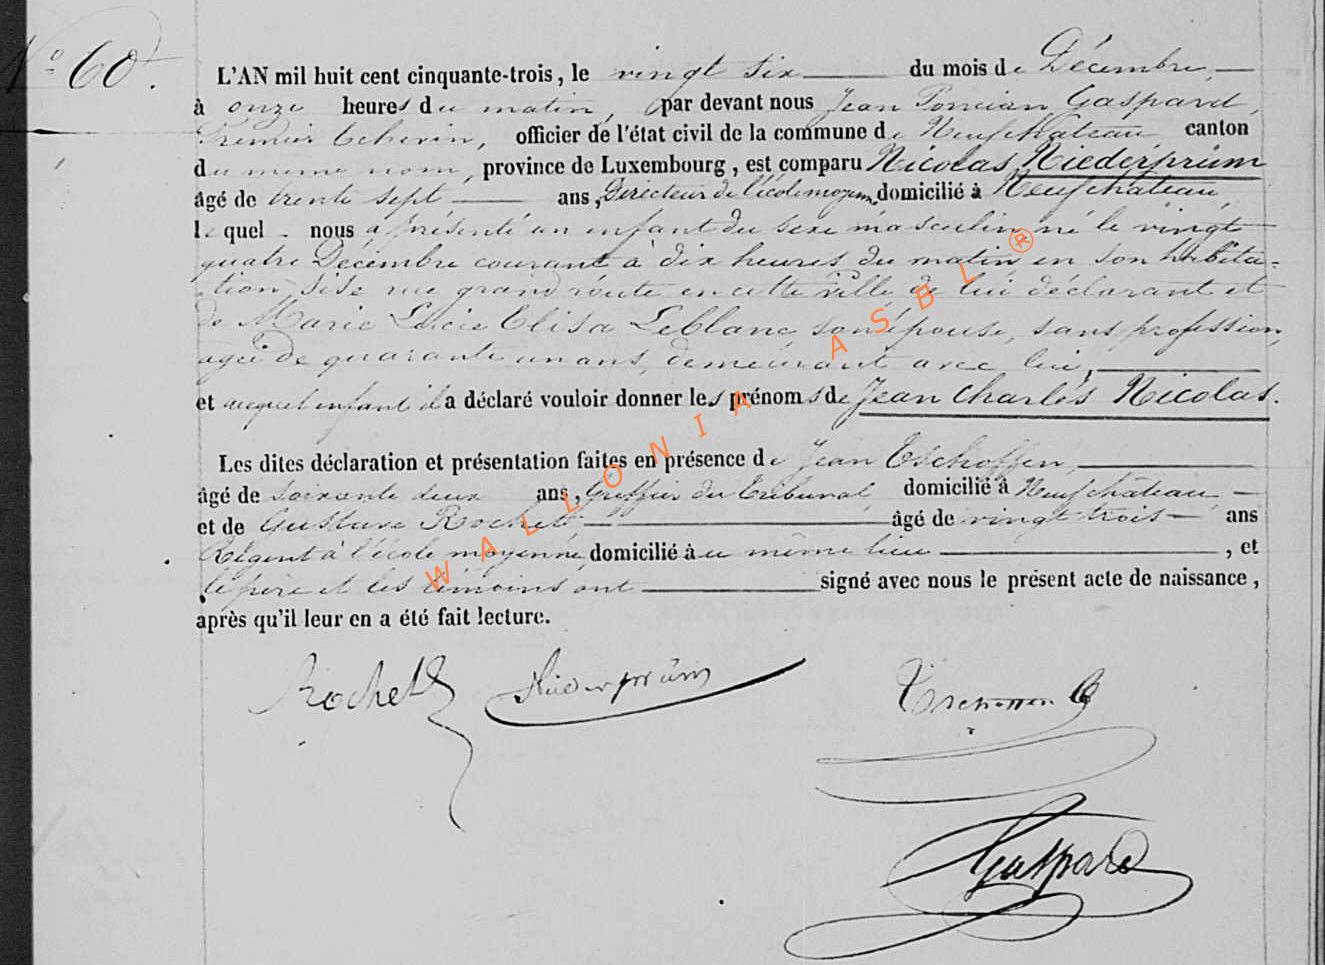 N° 60.
L'AN mil huit cent cinquante-trois, le vingt six du mois de Décembre,
à onze heures du matin, par devant nous Jean Poncian Gaspard
Premier Echevin, officier de l'état civil de la commune de Neufchateau canton
du meme nom, province de Luxembourg, est comparu Nicolas Niederprüm
âgé de trente sept ans, Directeur de l'école moyenne domicilié à Neufchateau,
lequel nous a présenté un enfant du sexe masculin, né le vingt
quatre Décembre courant à dix heures du matin en son habita=
tion sise rue grand route en cette ville de lui déclarant et
de Marie Lucie Elisa Leblanc son épouse, sans profession,
agée de quarante un ans, demeurant avec lui,
et auquel enfant il a déclaré vouloir donner les prénoms de Jean Charles Nicolas.
Les dites déclaration et présentation faites en présence de Jean Tschoffen,
âgé de soixante deux ans, Greffier du tribunal, domicilié à Neufchâteau
et de Gustave Rochet âgé de vingt trois ans
Régent à l'école moyenne, domicilié à u même lieu, et
le père et les témoins ont signé avec nous le présent acte de naissance,
après qu'il leur en a été fait lecture.
Rochet Niederprüm Tschoffen
Gaspard
WALLONIA ASBL ®